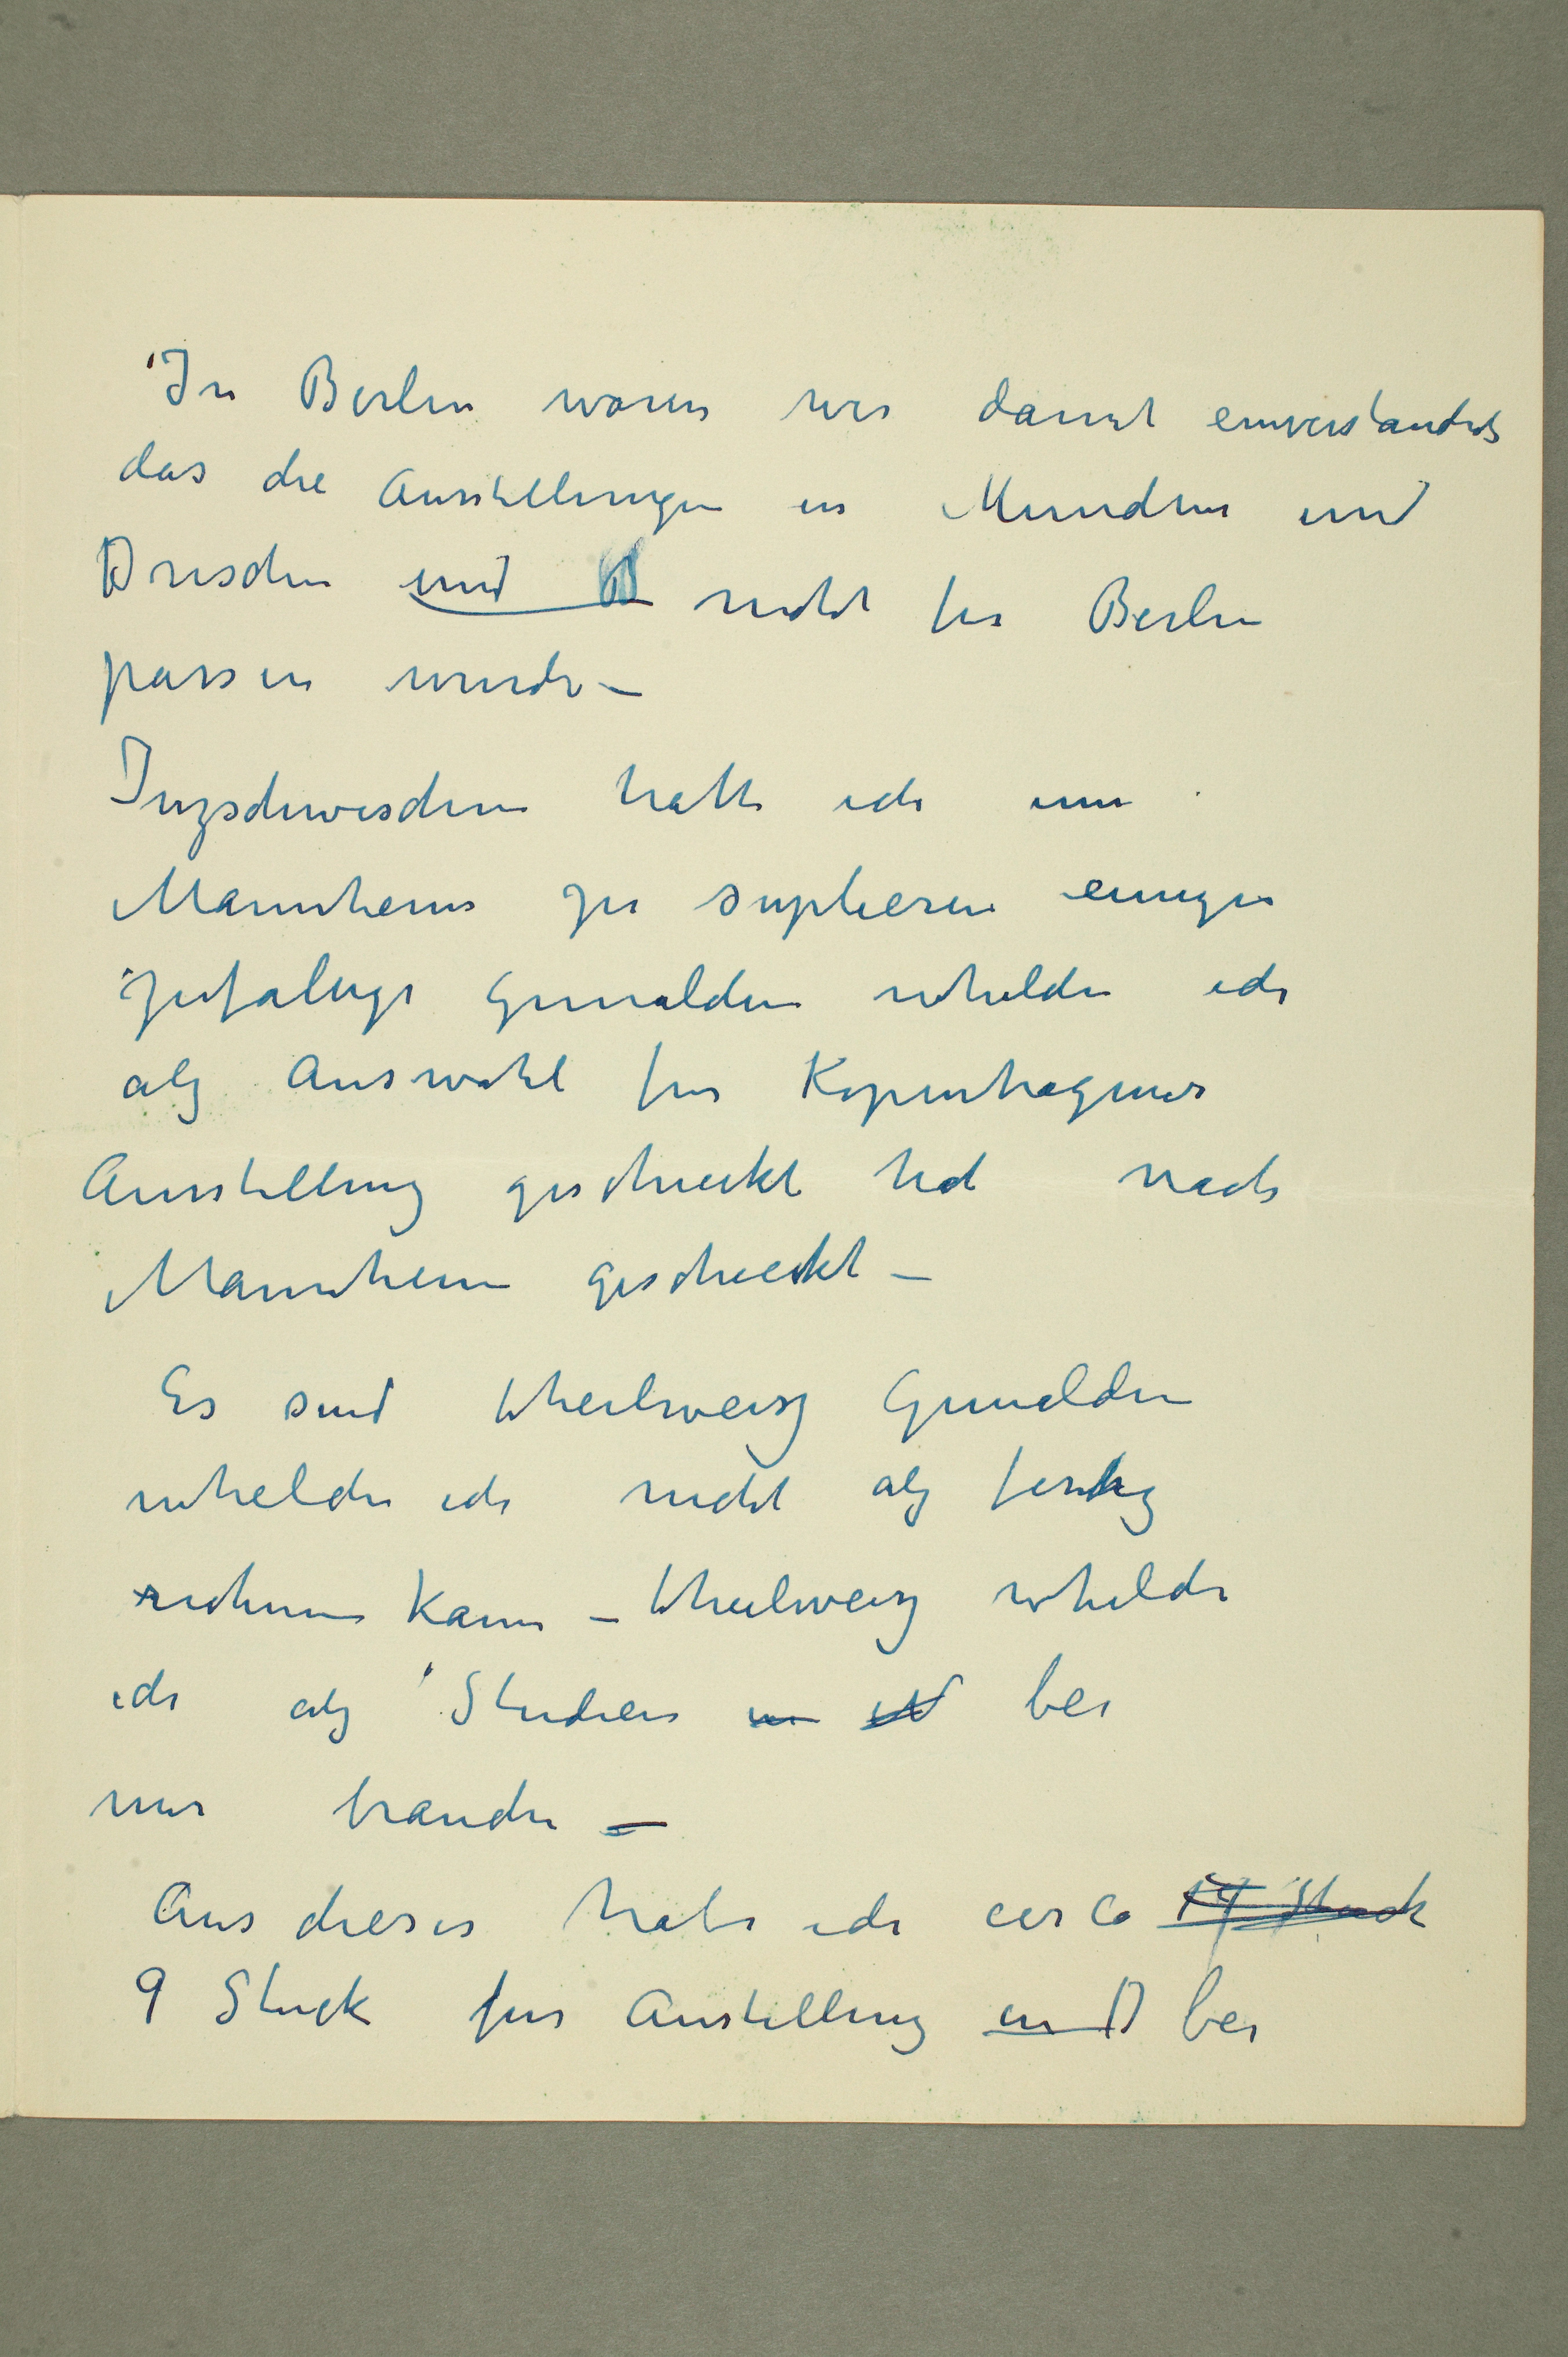 In Berlin waren wir damit einverstanden
das die Ausstellungen in Munchen und
Dresden und nicht für Berlin
passen wurde –
Inzschwischen hatte ich um
Mannheim zu suplieren einige
zufalige Gemalden whelche ich
alz Auswahl fur Kopenhagener
Ausstellung geschieckt hat nach
Mannheim geschieckt –
Es sind theilweisz Gemalden
whelche ich nicht alz fertig
rechnen kann – theilweisz whelche
ich alz Studien bei
mir brauche –
Aus dieser habe ich cirka 17 Stuck
9 Stuck fur Austellung in D bei